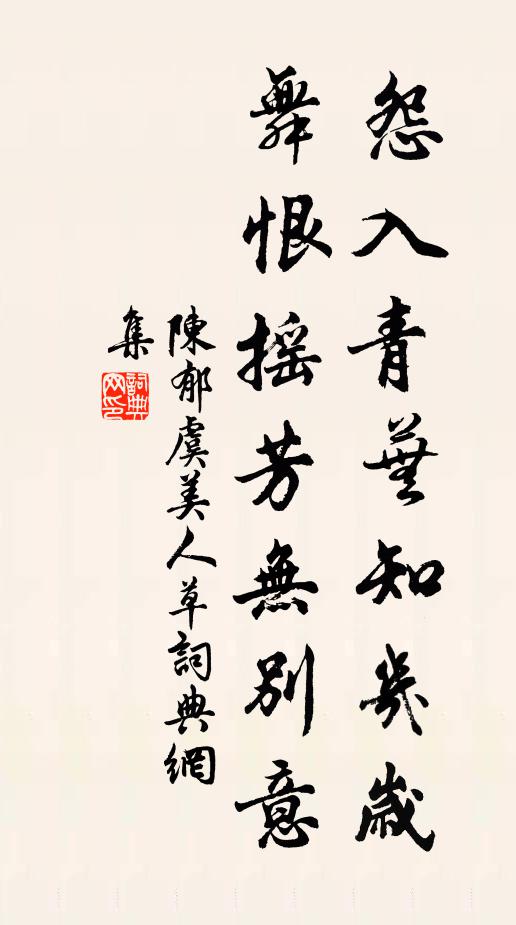 怨入青蕪知幾歲
舞恨搖芳無別意
陳郁虞美人草詞典網
集
詞典
网印